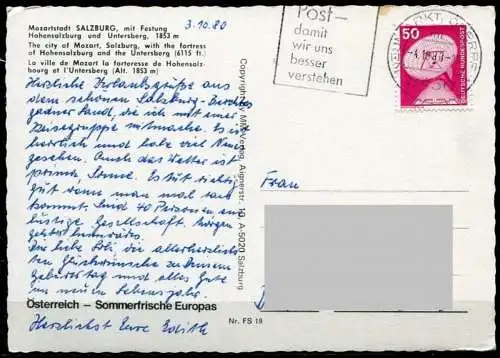 Mozartstadt SALZBURG, mit Festung
Hohensalzburg und Untersberg, 1853 m
The city of Mozart, Salzburg, with the fortress
of Hohensalzburg and the Untersberg (6115 ft.)
La ville de Mozart la forteresse de Hohensalz-
bourg et l'Untersberg (Alt. 1853 m)
3.10.80
Herzliche Urlaubsgrüße aus
dem schönen Salzburg-Berchtes
gadner Land, die ich mit einer
Reisegruppe mitmache. Es ist
herrlich und habe viel Neues
gesehen. Auch das Wetter ist
prima, Sonne. Es tut richtig
gut wenn man mal raus
kommt. Sind 40 Personen, eine
lustige Gesellschaft, morgen
geht es heimwärts.
Die liebe die allerherzlichsten
Glückwünsche zu Deinem
Geburtstag und alles Gute
im neuen Lebensjahr.
Österreich – Sommerfrische Europas
Herzlichst Eure Edith
Nr. FS 18
Copyright by MM-Verlag, Aignerstr. 10, A-5020 Salzburg
Post-
damit
wir uns
besser
verstehen
50
DEUTSCHE BUNDESPOST
Frau